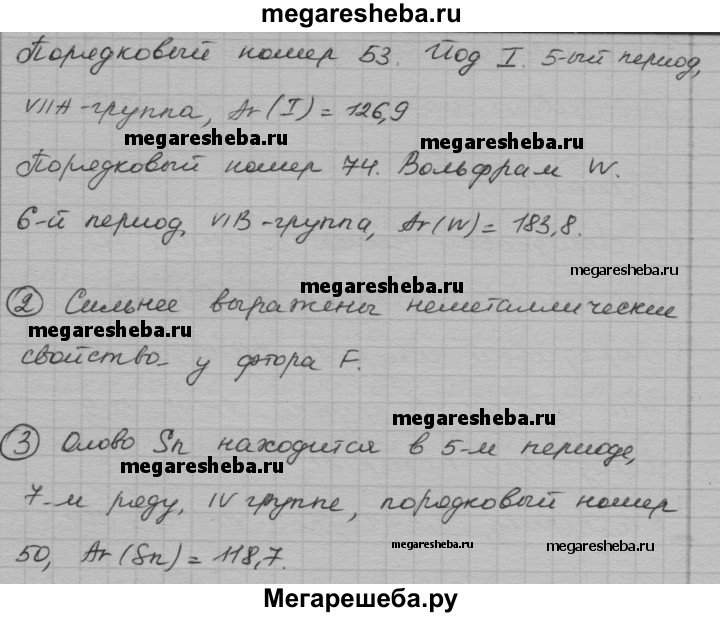 megaresheba.ru
Порядковый номер 53. Йод I. 5-ый период,
VIIA-группа, Ar(I) = 126,9
megaresheba.ru megaresheba.ru
Порядковый номер 74. Вольфрам W.
6-й период, VIB-группа, Ar(W) = 183,8.
megaresheba.ru
megaresheba.ru
2 Сильнее выражены неметаллические
megaresheba.ru
свойства у фтора F.
megaresheba.ru
3 Олово Sn находится в 5-м периоде,
megaresheba.ru
7-м ряду, IV группе, порядковый номер
50, Ar(Sn) = 118,7.
megaresheba.ru megaresheba.ru
Мегарешеба.ру